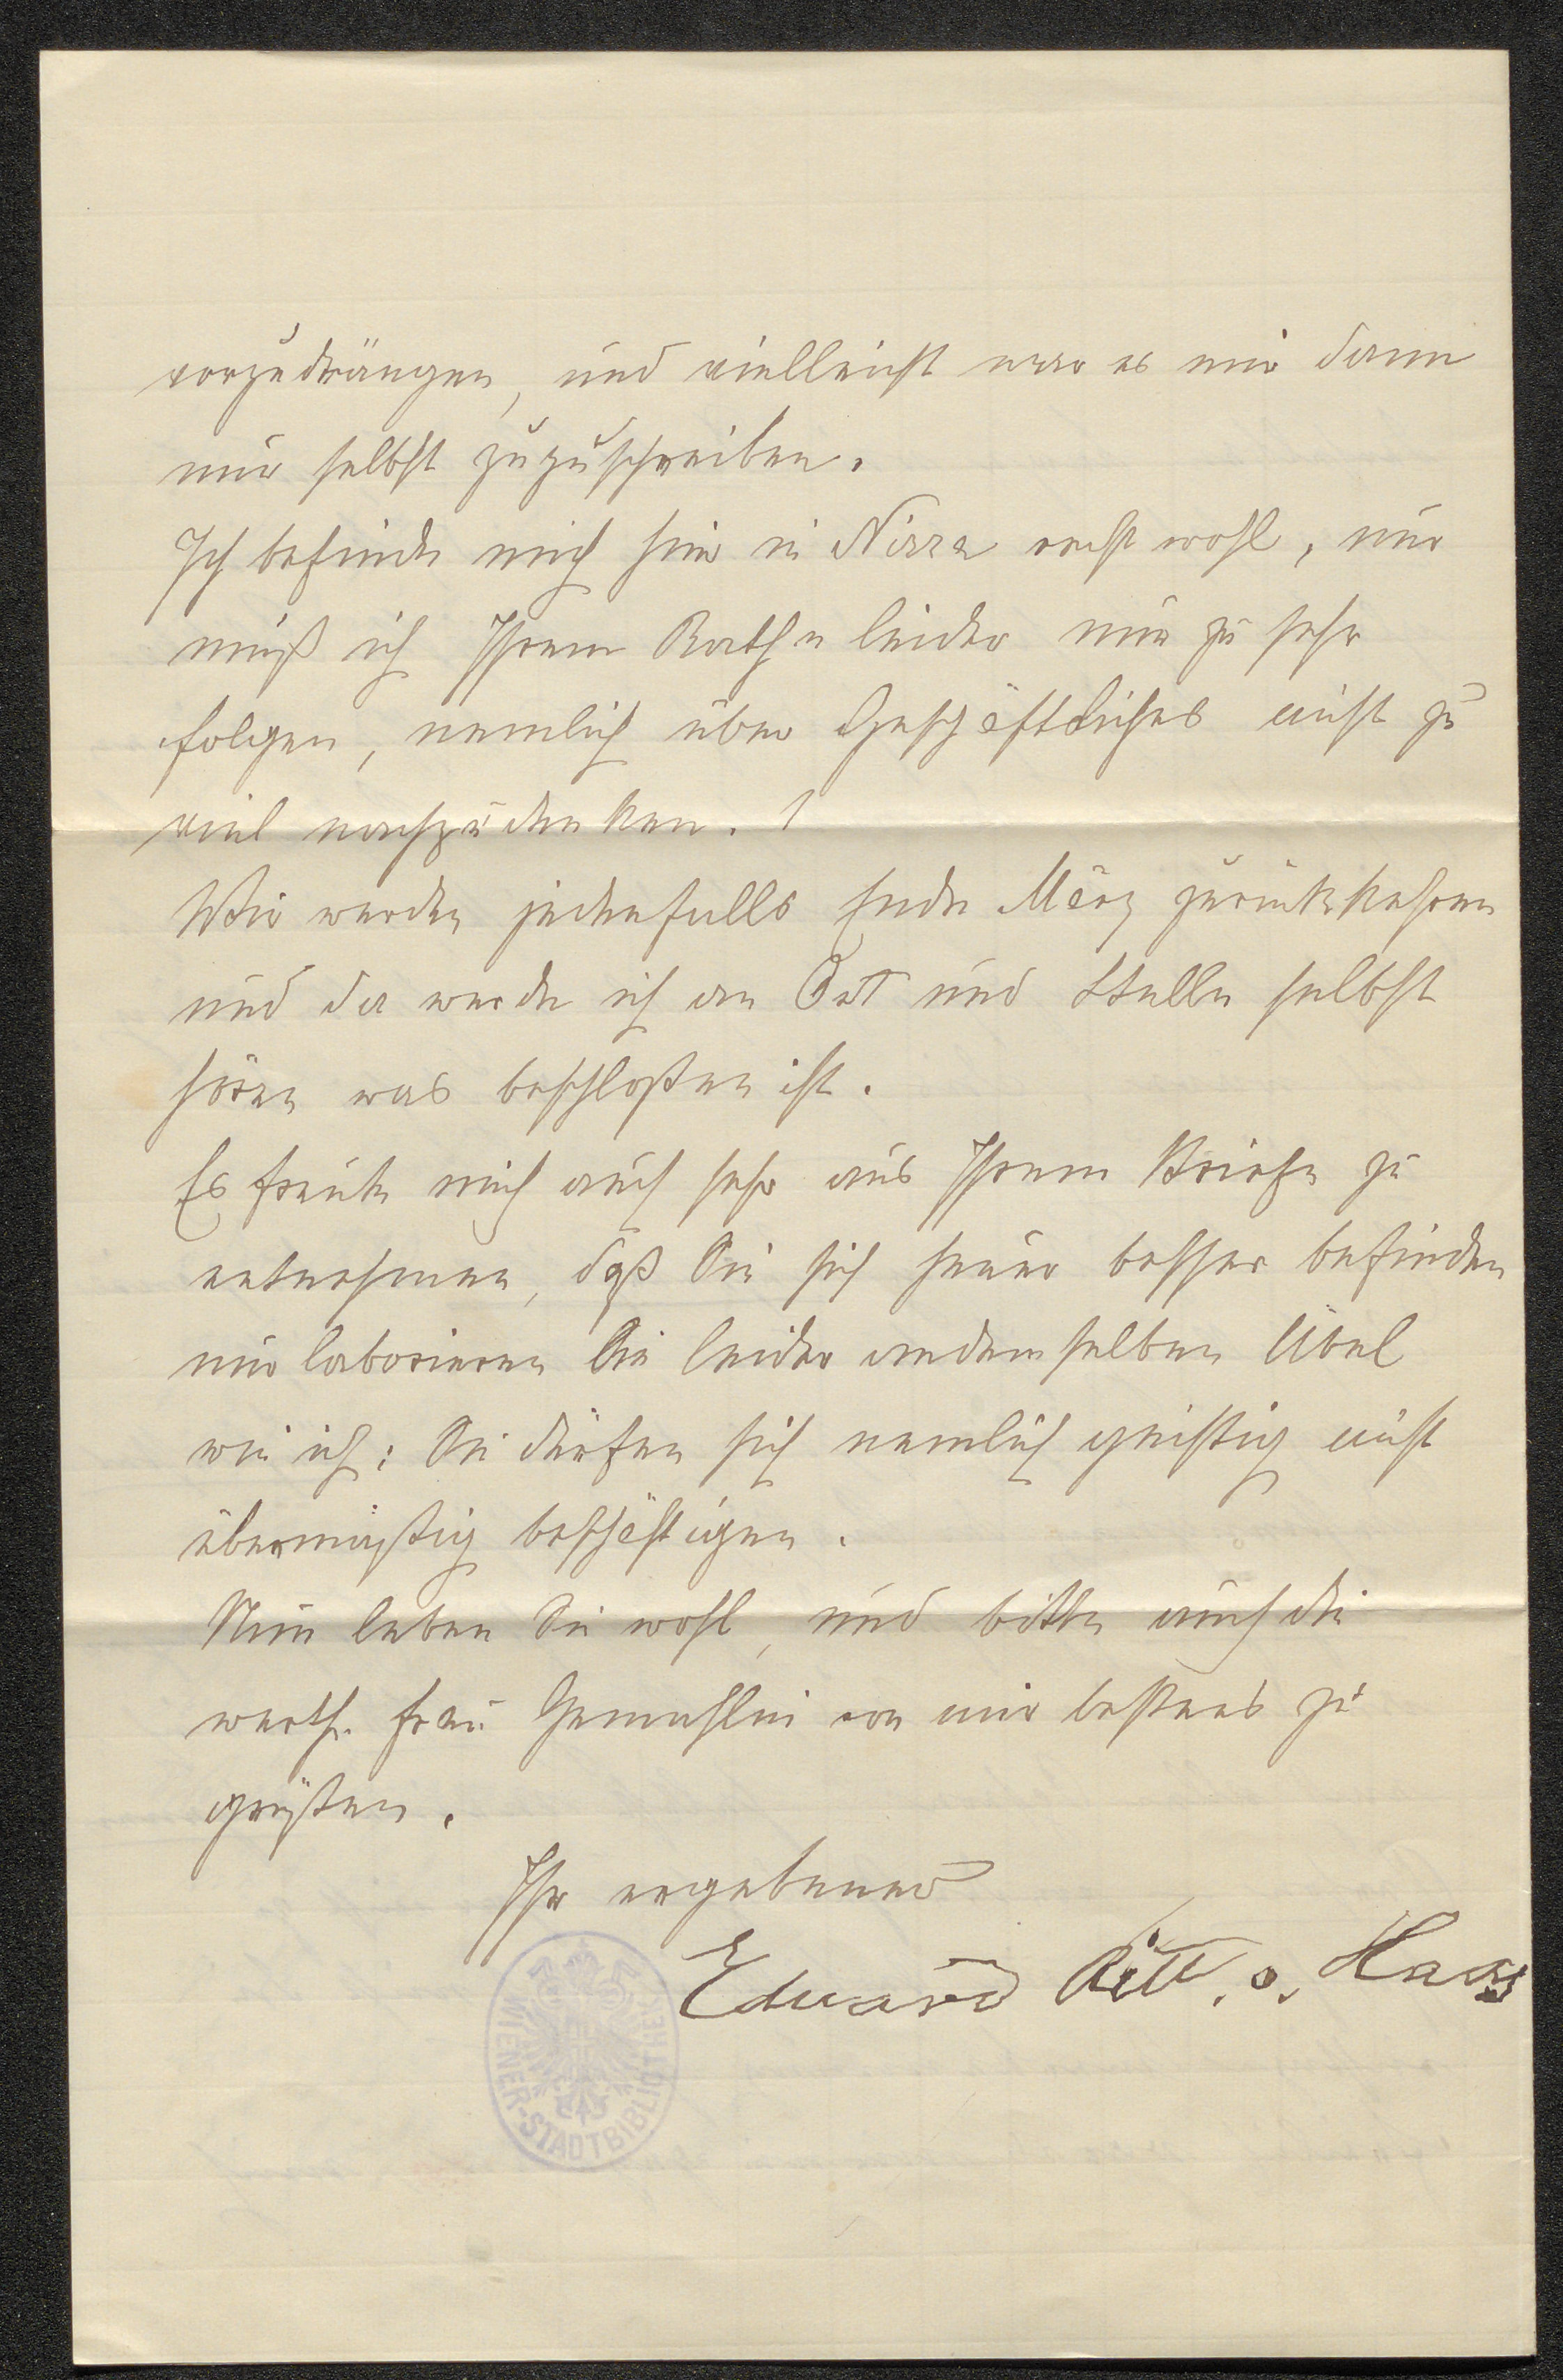 vorzudrängen, und vielleicht war es mir dann
nur selbst zuzuschreiben.
Ich befinde mich hier in Nizza recht wohl, nur
muß ich Ihrem Rathe leider nur zu sehr
folgen, nemlich über Geschäftliches nicht zu
viel nachzudenken. !
Wir werden jedenfalls Ende März zurückkehren
und da werde ich an Ort und Stelle selbst
hören was beschloßen ist.
Es freute mich auch sehr aus Ihrem Briefe zu
entnehmen, daß Sie sich heuer besser befinden
nur laborieren Sie leider an demselben Übel
wie ich: Sie dürfen sich nemlich geistig nicht
übermäßig beschäftigen.
Nun leben Sie wohl, und bitte auch die
werth. Frau Gemahlin von mir bestens zu
grüßen.
Ihr ergebener
Eduard Ritt. v. Haas
WIENER-STADTBIBLIOTHEK